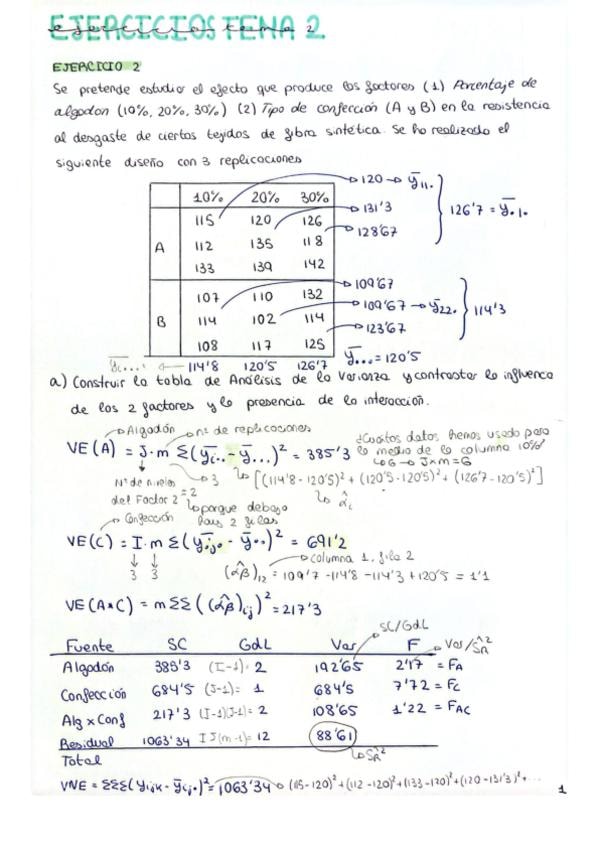 EJERCICIOS TEMA 2
ejercicios tema 2
EJERCICIO 2
Se pretende estudiar el efecto que produce los factores (1) Porcentaje de
algodon (10%, 20%, 30%) (2) Tipo de confección (A y B) en la resistencia
al desgaste de ciertos tejidos de fibra sintética. Se ha realizado el
siguiente diseño con 3 replicaciones
10% 20% 30%
A
115 120 126
112 135 118
133 139 142
B
107 110 132
114 102 114
108 117 125
120 → ȳ11.
131'3
128'67
126'7 = ȳ.1.
109'67
109'67 → ȳ22.
123'67
114'3
ȳi... ← 114'8 120'5 126'7
ȳ... = 120'5
a) Construir la tabla de Análisis de la Varianza y contrastar la influenca
de los 2 factores y la presencia de la interacción.
Algodón nº de replicaciones
VE(A) = J·m Σ(ȳi.. - ȳ...)² = 385'3
¿Cuántos datos hemos usado para
la media de la columna 10%?
6 → J×m = 6
Nº de niveles
del Factor 2 = 2
3
[(114'8 - 120'5)² + (120'5 - 120'5)² + (126'7 - 120'5)²]
α̂i
porque debajo
hay 2 filas
Confección
VE(C) = I·m Σ(ȳ.j. - ȳ..)² = 691'2
3 3
columna 1, fila 2
(α̂β)12 = 109'7 - 114'8 - 114'3 + 120'5 = 1'1
VE(A*C) = m ΣΣ((α̂β)ij)² = 217'3
SC/GdL
Fuente SC GdL Var F Var/ŜR²
Algodón 385'3 (I-1) = 2 192'65 2'17 = FA
Confección 684'5 (J-1) = 1 684'5 7'72 = FC
Alg x Conf 217'3 (I-1)(J-1) = 2 108'65 1'22 = FAC
Residual 1063'34 IJ(m-1) = 12 88'61
ŜR²
Total
VNE = ΣΣΣ(yijk - ȳij.)² = 1063'34 (115-120)² + (112-120)² + (133-120)² + (120-131'3)² + ...
1